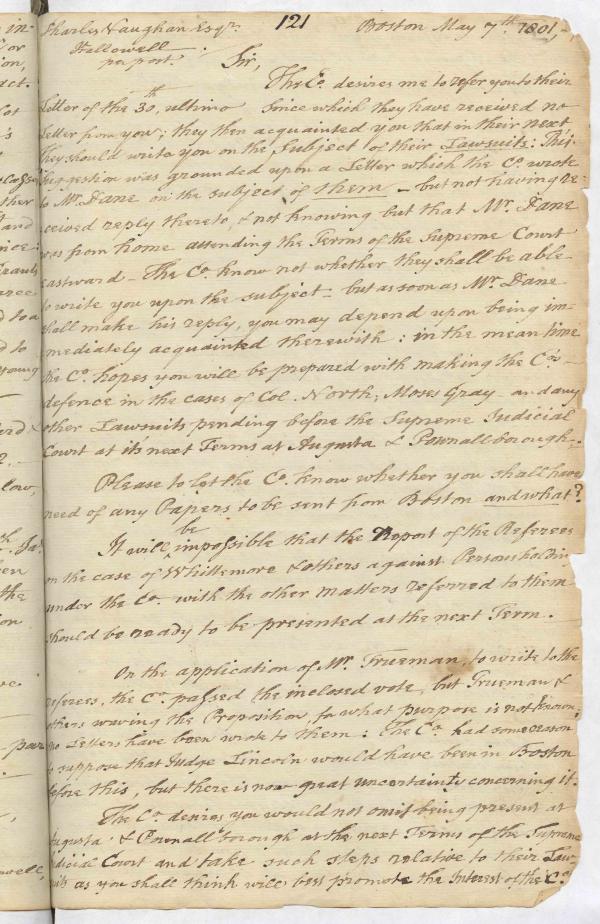 Charles Vaughan Esqr. 121 Boston May 7th. 1801,
Hallowell
per post. Sir,
The Co. desires me to refer you to their
Letter of the 30th, ultimo Since which they have received no
Letter from you; they then acquainted you that in their next,
They should write you on the Subject of their Lawsuits: This
Suggestion was grounded upon a Letter which the Co. wrote
to Mr. Dane on the subject of them - but not having re-
ceived reply thereto, & not knowing but that Mr. Dane
was from home attending the Terms of the Supreme Court
eastward - The Co. know not whether they shall be able
to write you upon the subject - but as soon as Mr. Dane
shall make his reply, you may depend upon being im-
mediately acquainted therewith: in the mean time
the Co. hopes you will be prepared with making the Co's
defence in the cases of Col. North, Moses Gray - and any
other Lawsuits pending before the Supreme Judicial
Court at it's next Terms at Augusta & Pownallborough.
Please to let the Co. know whether you shall have
need of any Papers to be sent from Boston and what?
It will be impossible that the Report of the Referees
in the case of Whittemore & others against Persons holdin
under the Co. with the other matters referred to them
should be ready to be presented at the next Term.
On the application of Mr. Trueman, to write to the
referees, the Co. passed the inclosed vote, but Trueman &
others waving the Proposition, for what purpose is not known,
no Letters have been wrote to them: The Co. had some reason
to suppose that Judge Lincoln would have been in Boston
before this, but there is now great uncertainty concerning it.
The Co. desires you would not omit being present at
Augusta & Pownallborough at the next Terms of the Supreme
Judicial Court and take such steps relative to their Law-
suits as you shall think will best promote the Interest of the Co.